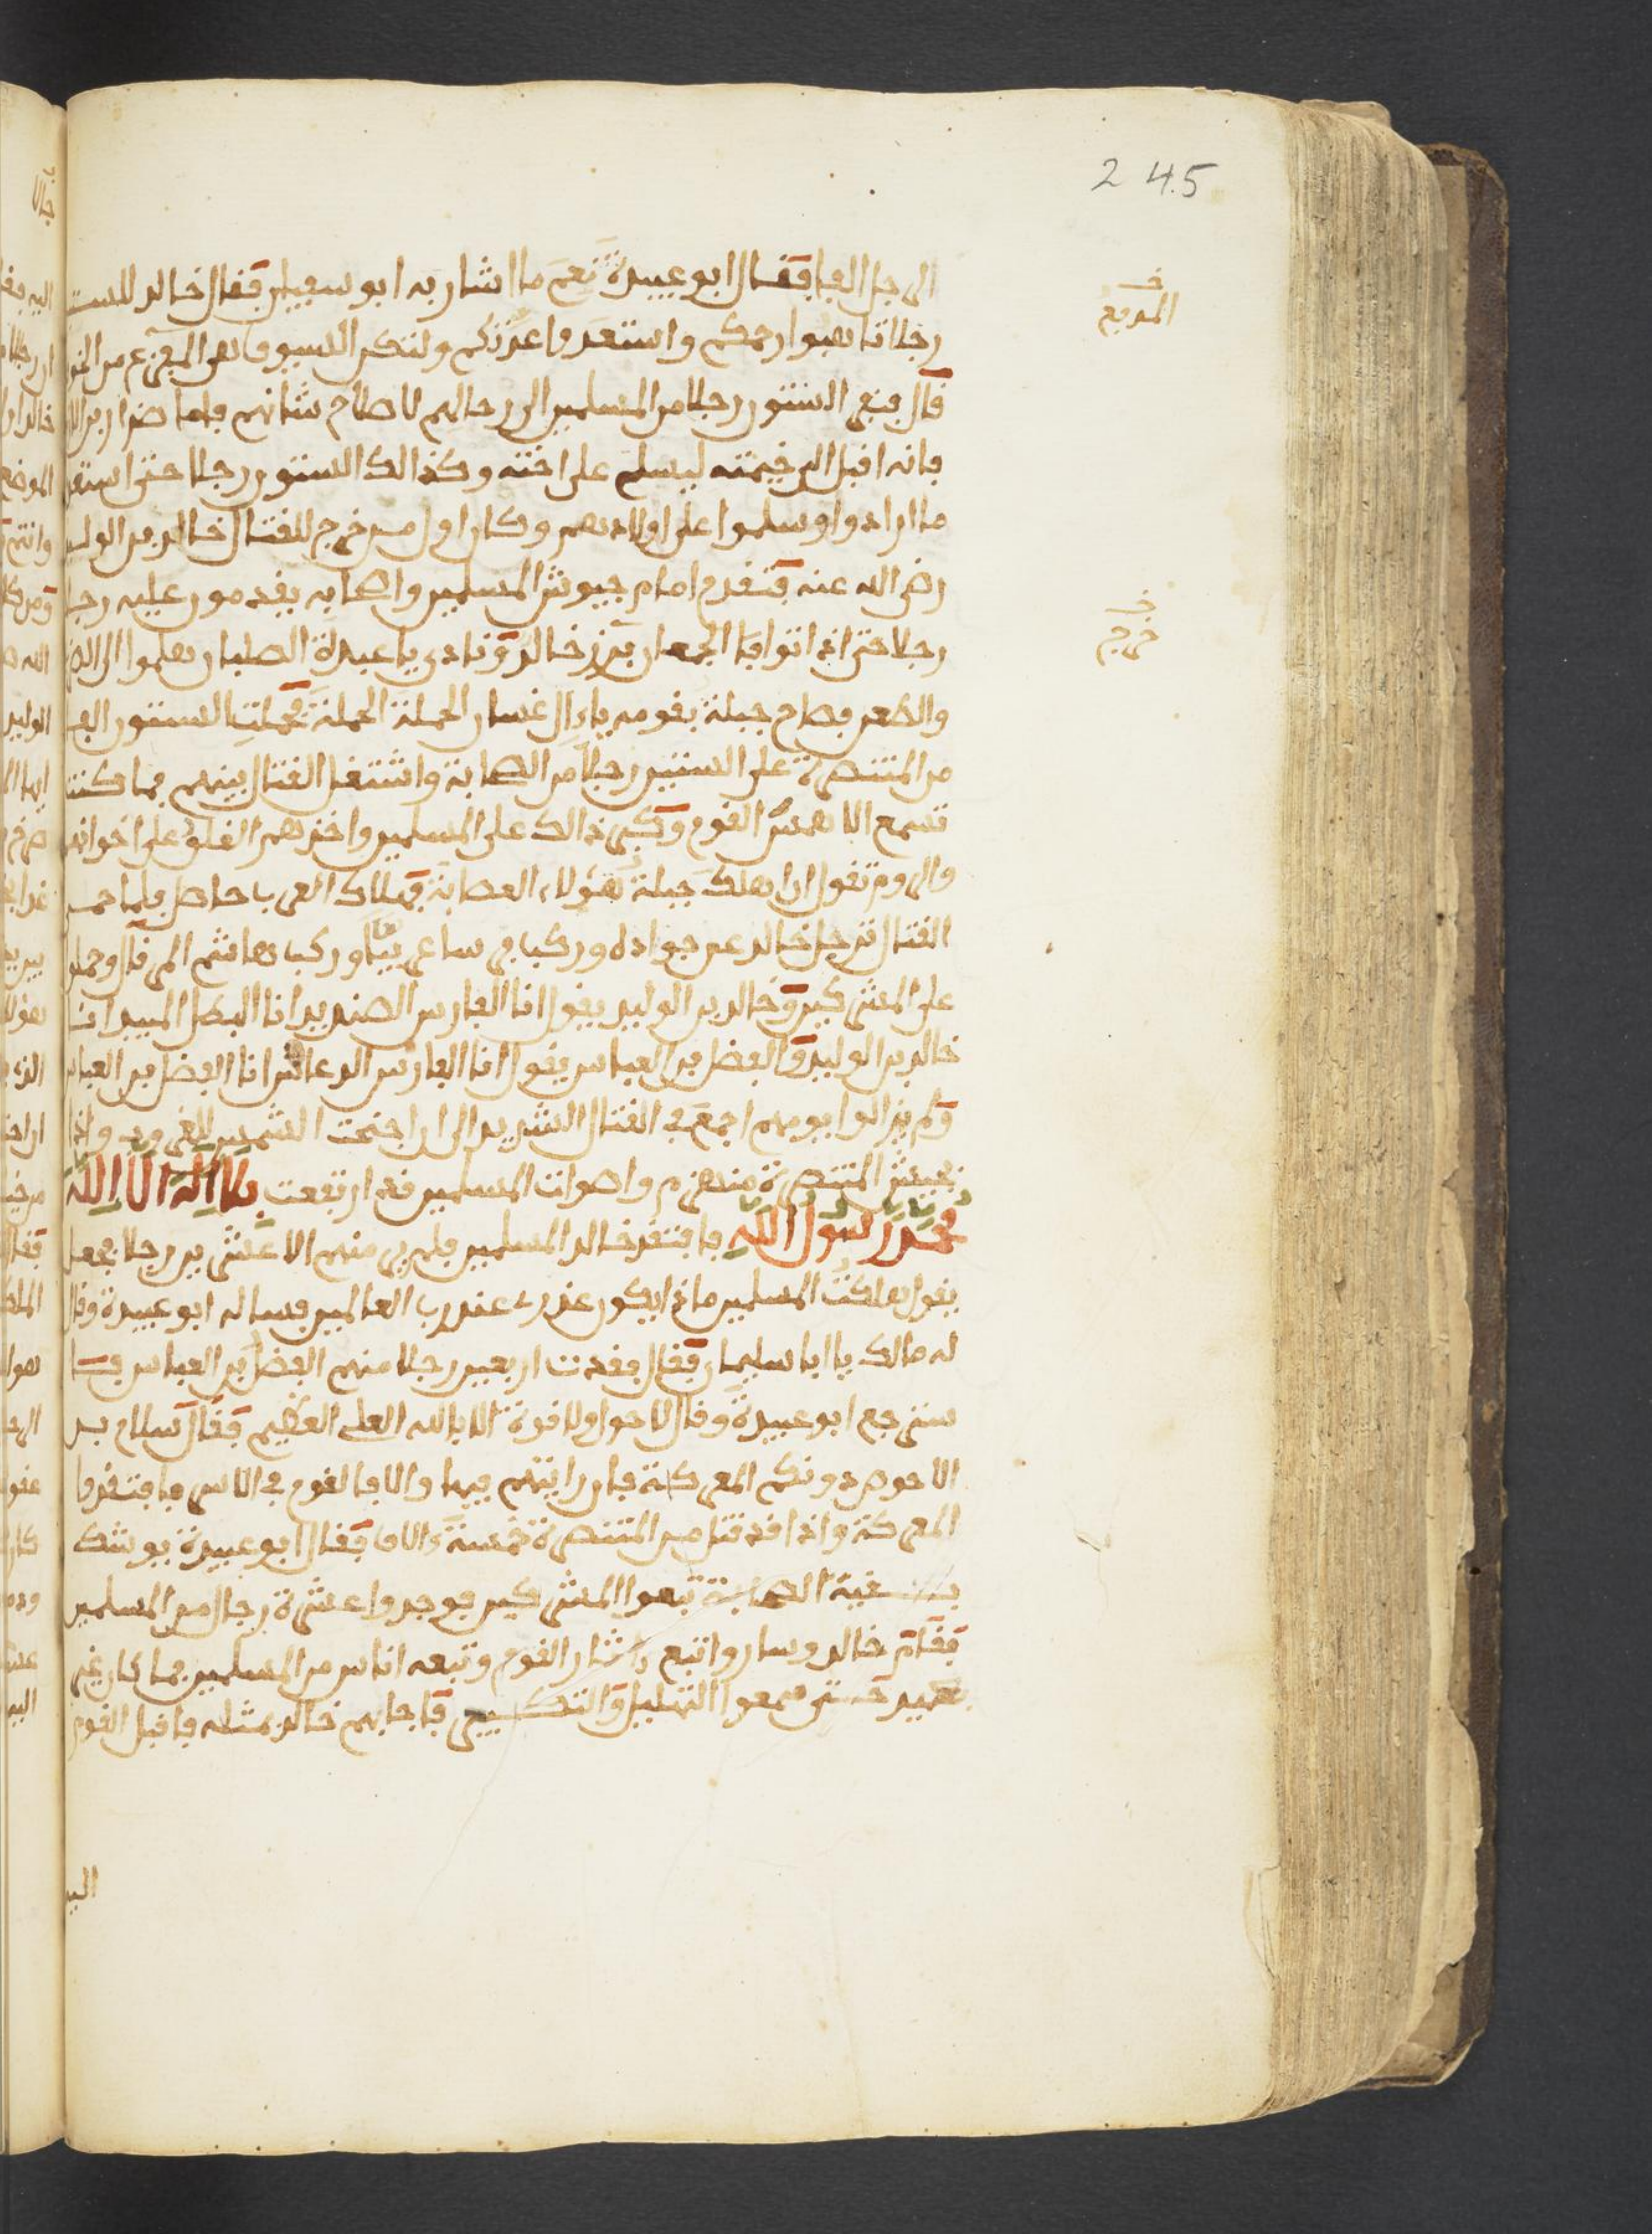 245
الرجل الفا فقال ابو عبيدة نعم ما اشار به ابو سفيان فقال خالد للست
رجلا تاهبوا رحمكم واستعدوا عدتكم ولتكن السيوف هى المفزع من
قال فرجع الستون رجلا من المسلمين الى رحالهم لاصلاح شانهم فاما ضرار بن
فانه اقبل الى خيمته ليسلم على اخته وكذالك الستون رجلا حتى
ما ارادوا وسلموا على اولادهم وكان اول من خرج للقتال خالد بن الوليد
رضى الله عنه فتقدم امام جيوش المسلمين واصحابه يقدمون عليه رجلا
رجلا حتى اذا التوا فا الجمعان برز خالد ونادى يا عبدة الصلبان هلموا الى
والطعن فصاح جبلة بقومه يا ال غسان الحملة الحملة فحملت الستون
من المتنصرة على الستين رجلا من الصحابة واشتغل القتال بينهم فما كنت
تسمع الا همس القوم وكبر ذالك على المسلمين واخذهم القلق على اخوانهم
والروم تقول ان اهلك جبلة هؤلاء العصابة فهلاك العرب حاصل فلما حمى
القتال ترجل خالد عن جواده وركب وركب هاشم المرقال وحمل
على المشركين وخالد بن الوليد يقول انا الفارس الصنديد انا البطل المبيد انا
خالد بن الوليد والفضل بن العباس يقول انا الفارس الدعاس انا الفضل بن العباس
ولم يزالوا يومهم اجمع فى القتال الشديد الى ان اجنحت الشمس للغروب واذا
بجيش المتنصرة منهزم واصوات المسلمين قد ارتفعت بلا اله الا الله
محمد رسول الله فافتقد خالد المسلمين فلم ير منهم الا عشرين رجلا فجعل
يقول هلكت المسلمين ماذا يكون عذرى عند رب العالمين فساله ابو عبيدة وقال
له مالك يا ابا سليمان فقال فقدت اربعين رجلا منهم الفضل بن العباس فا
سترجع ابو عبيدة وقال لا حول ولا قوة الا بالله العلى العظيم فقال سلام بن
الاحوص دونكم المعركة فان رايتهم فيها والا فالقوم فى الاسر فافتقدوا
المعركة واذا قد قتل من المتنصرة خمسة ءالاف فقال ابو عبيدة يوشك
بقية الصحابة تبعوا المشركين فوجدوا عشرة رجال من المسلمين
فقام خالد وسار واتبع ءاثار القوم وتبعه اناس من المسلمين فما كان غير
بعيد حتى سمعوا التهليل والتكبير فاجابهم خالد بمثله فاقبل القوم
خـ
المدفع
خـ
خرج